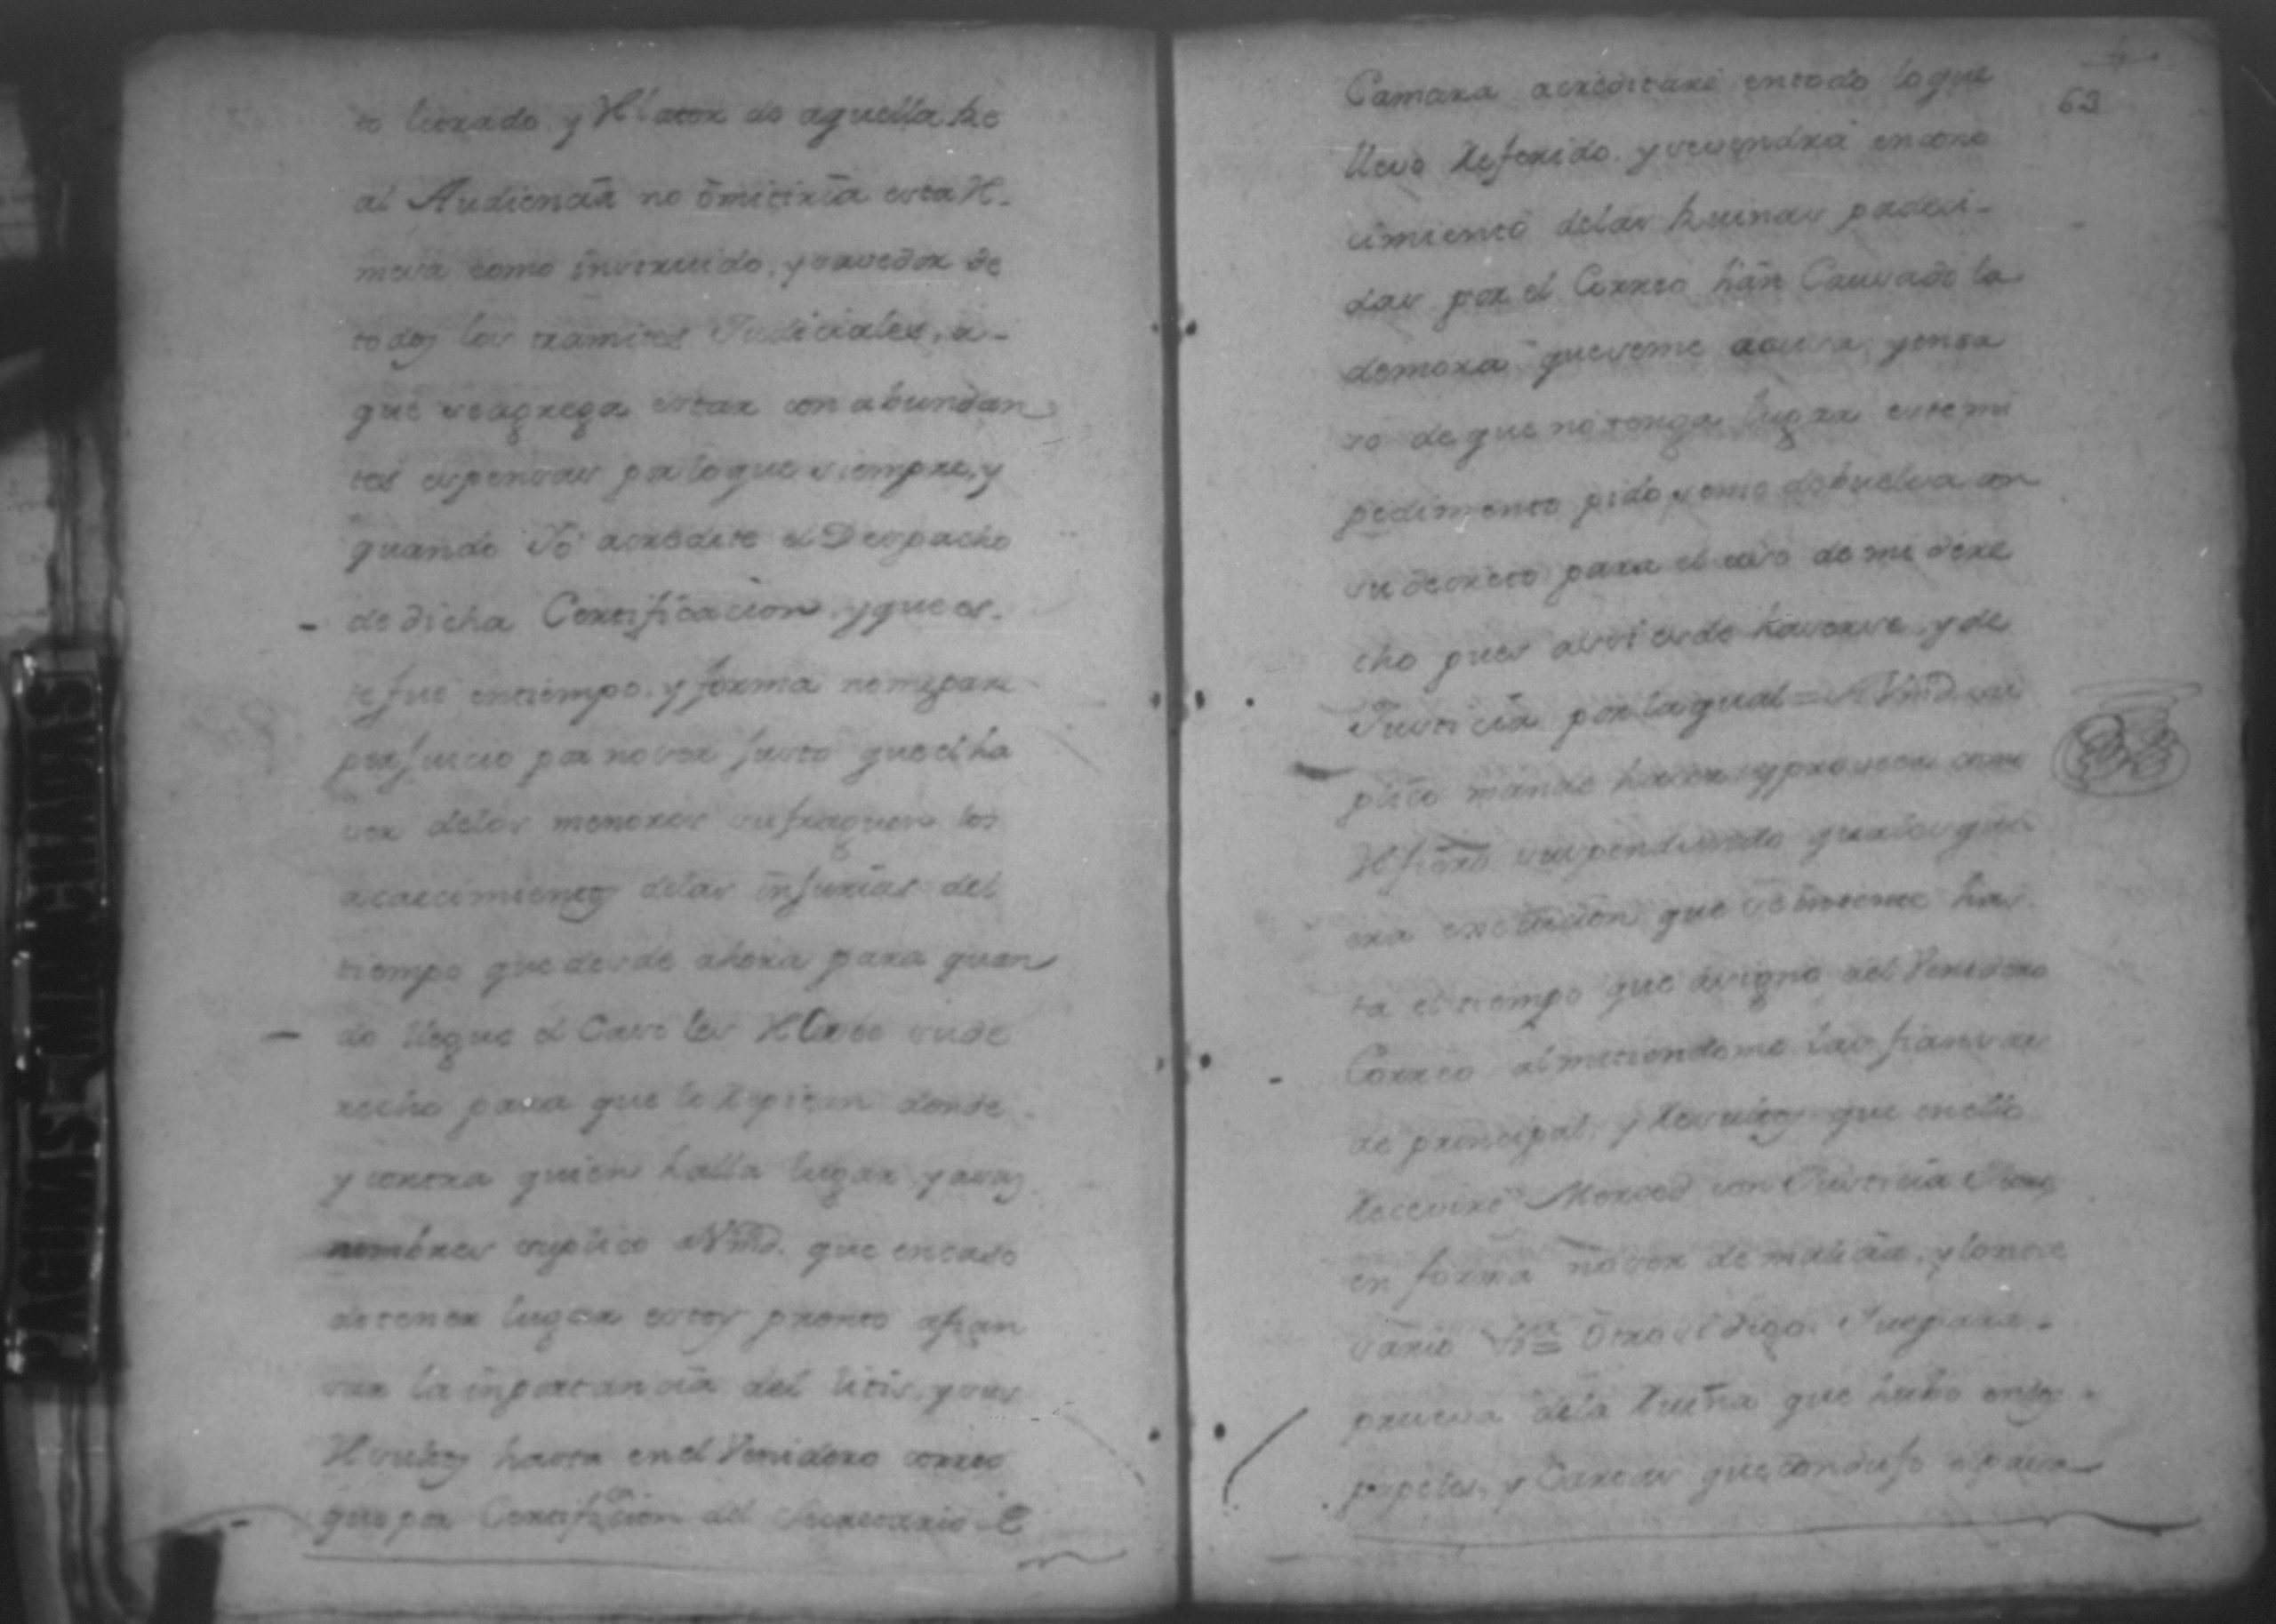 to letrado y Relator de aquella Re
al Audiencia no omitiria esta Re-
mesa como instruido, y savedor de
todos los tramites Judiciales, a-
que se agrega estar con abundan
tes espensas por lo que siempre, y
quando Yo acredite el Despacho
de dicha Certificacion, y que es-
te fue en tiempo, y forma no me pare
perjuicio por no ser justo que el ha
ver de los menores sufraguen los
acaecimientos de las injurias del
tiempo que desde ahora para quan
do llegue el Caso les Relaxo su de
recho para que le repitan donde
y contra quien halla lugar, y a sus
nombres suplico a Vmd. que en caso
de tener lugar estoy pronto afian
zar la importancia del litis, y sus
Resultos hasta en el Venidero correo
que por Certificacion del Secretario de
Camara acreditaré en todo lo que
llevo Referido, y se vendrá en cono
cimiento de las Ruinas padeci-
das por el Correo han Causado la
demora que se me acusa, y en ca
so de que no tenga lugar este mi
pedimento pido se me debuelva con
su decreto para el uso de mi dere
cho pues assi es de haverse, y de
Justicia por la qual = A Vmd. su
plico mande haser, y proveer como
Refiero suspendiendo qualesqui
era execucion que se intente has
ta el tiempo que asigno del Venidero
Correo admitiendome las fiansas
de principal, y Resultos que en ello
Receviré Merced con Justicia Juro
en forma no ser de malicia, y lo nece
sario Va = Otro si digo. Que para-
prueva de la Ruina que hubo en los
papeles, y Cartas que condujo
63
PAGINAS